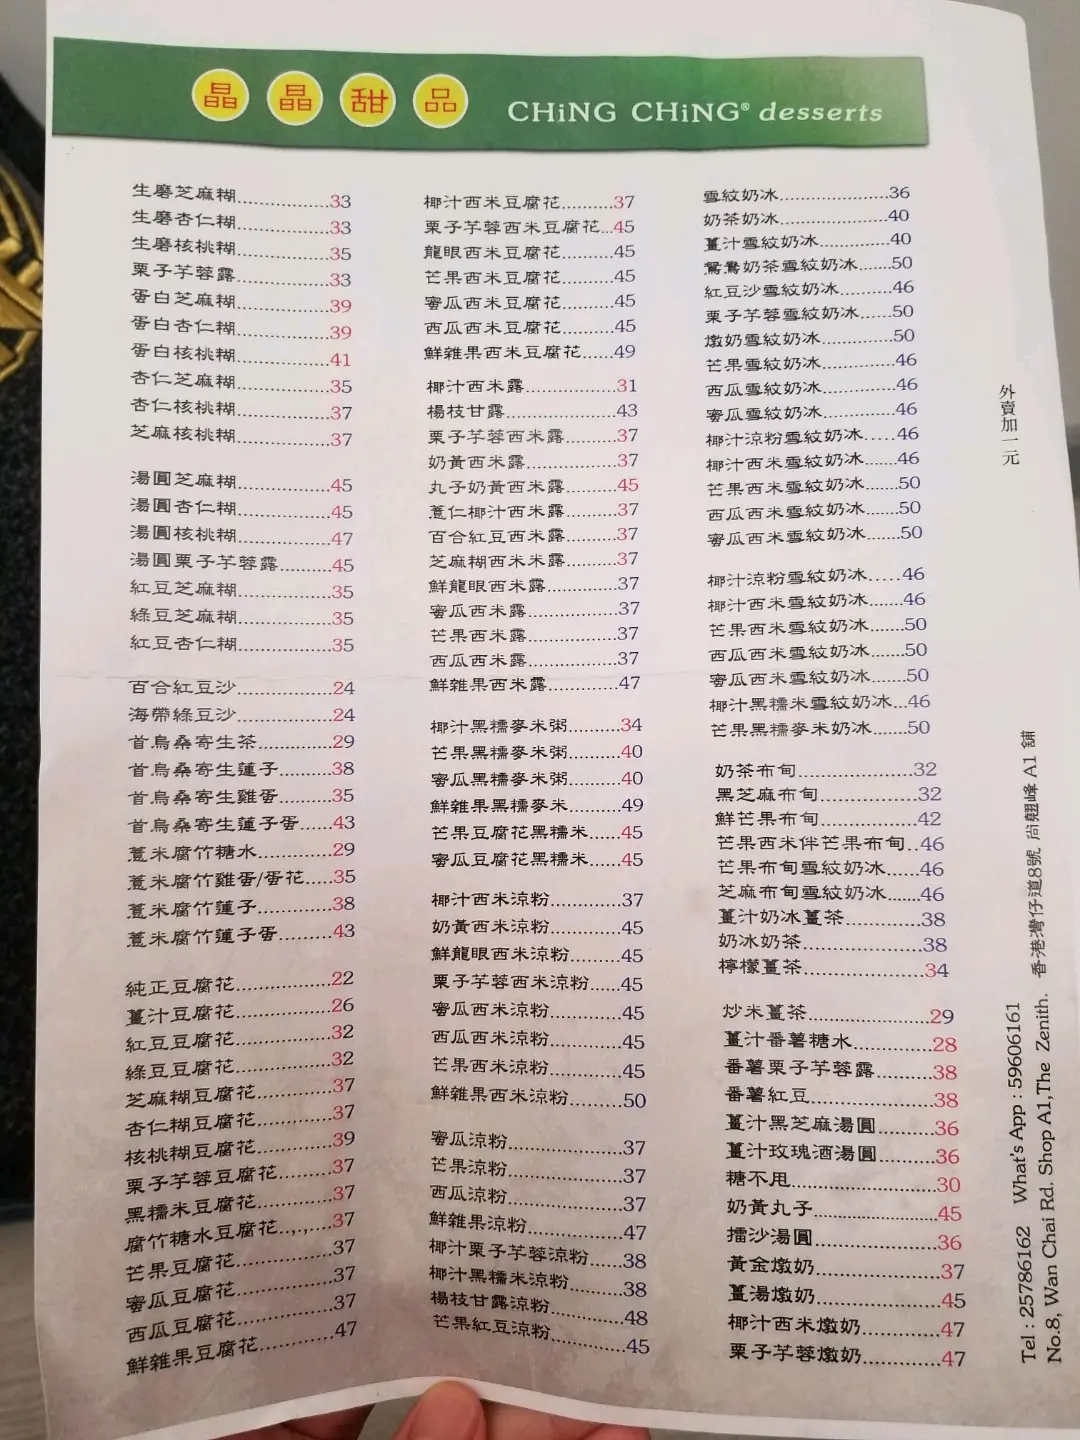 晶晶甜品 CHiNG CHiNG® desserts
生磨芝麻糊..................33
生磨杏仁糊..................33
生磨核桃糊..................35
栗子芋蓉露..................33
蛋白芝麻糊..................39
蛋白杏仁糊..................39
蛋白核桃糊..................41
杏仁芝麻糊..................35
杏仁核桃糊..................37
芝麻核桃糊..................37
湯圓芝麻糊..................45
湯圓杏仁糊..................45
湯圓核桃糊..................47
湯圓栗子芋蓉露..........45
紅豆芝麻糊..................35
綠豆芝麻糊..................35
紅豆杏仁糊..................35
百合紅豆沙..................24
海帶綠豆沙..................24
首烏桑寄生茶..............29
首烏桑寄生蓮子..........38
首烏桑寄生雞蛋..........35
首烏桑寄生蓮子蛋......43
薏米腐竹糖水..............29
薏米腐竹雞蛋/蛋花.....35
薏米腐竹蓮子..............38
薏米腐竹蓮子蛋..........43
純正豆腐花..................22
薑汁豆腐花..................26
紅豆豆腐花..................32
綠豆豆腐花..................32
芝麻糊豆腐花..............37
杏仁糊豆腐花..............37
核桃糊豆腐花..............39
栗子芋蓉豆腐花..........37
黑糯米豆腐花..............37
腐竹糖水豆腐花..,.,....37
芒果豆腐花..................37
蜜瓜豆腐花..................37
西瓜豆腐花..................37
鮮雜果豆腐花..............47
椰汁西米豆腐花..........37
栗子芋蓉西米豆腐花...45
龍眼西米豆腐花..........45
芒果西米豆腐花..........45
蜜瓜西米豆腐花..........45
西瓜西米豆腐花..........45
鮮雜果西米豆腐花......49
椰汁西米露..................31
楊枝甘露......................43
栗子芋蓉西米露..........37
奶黃西米露..................37
丸子奶黃西米露..........45
薏仁椰汁西米露..........37
百合紅豆西米露..........37
芝麻糊西米米露..........37
鮮龍眼西米露..............37
蜜瓜西米露..................37
芒果西米露..................37
西瓜西米露..................37
鮮雜果西米露..............47
椰汁黑糯麥米粥..........34
芒果黑糯麥米粥..........40
蜜瓜黑糯麥米粥..........40
鮮雜果黑糯麥米..........49
芒果豆腐花黑糯米......45
蜜瓜豆腐花黑糯米......45
椰汁西米涼粉..............37
奶黃西米涼粉..............45
鮮龍眼西米涼粉..........45
栗子芋蓉西米涼粉......45
蜜瓜西米涼粉..............45
西瓜西米涼粉..............45
芒果西米涼粉..............45
鮮雜果西米涼粉..........50
蜜瓜涼粉......................37
芒果涼粉......................37
西瓜涼粉......................37
鮮雜果涼粉..................47
椰汁栗子芋蓉涼粉......38
椰汁黑糯米涼粉..........38
楊枝甘露涼粉..............48
芒果紅豆涼粉..............45
雪紋奶冰......................36
奶茶奶冰......................40
薑汁雪紋奶冰..............40
鴛鴦奶茶雪紋奶冰......50
紅豆沙雪紋奶冰..........46
栗子芋蓉雪紋奶冰......50
燉奶雪紋奶冰..............50
芒果雪紋奶冰..............46
西瓜雪紋奶冰..............46
蜜瓜雪紋奶冰..............46
椰汁涼粉雪紋奶冰.....46
椰汁西米雪紋奶冰......46
芒果西米雪紋奶冰......50
西瓜西米雪紋奶冰......50
蜜瓜西米雪紋奶冰......50
椰汁涼粉雪紋奶冰.....46
椰汁西米雪紋奶冰......46
芒果西米雪紋奶冰......50
西瓜西米雪紋奶冰......50
蜜瓜西米雪紋奶冰......50
椰汁黑糯米雪紋奶冰...46
芒果黑糯麥米奶冰......50
奶茶布甸......................32
黑芝麻布甸..................32
鮮芒果布甸..................42
芒果西米伴芒果布甸..46
芒果布甸雪紋奶冰......46
芝麻布甸雪紋奶冰......46
薑汁奶冰薑茶..............38
奶冰奶茶......................38
檸檬薑茶......................34
炒米薑茶......................29
薑汁番薯糖水..............28
番薯栗子芋蓉露..........38
番薯紅豆......................38
薑汁黑芝麻湯圓..........36
薑汁玫瑰酒湯圓..........36
糖不甩..........................30
奶黃丸子......................45
擂沙湯圓......................36
黃金燉奶......................37
薑湯燉奶......................45
椰汁西米燉奶..............47
栗子芋蓉燉奶..............47
外賣加一元
Tel : 25786162 What's App : 59606161
No.8, Wan Chai Rd. Shop A1,The Zenith. 香港灣仔道8號 尚翹峰 A1 舖